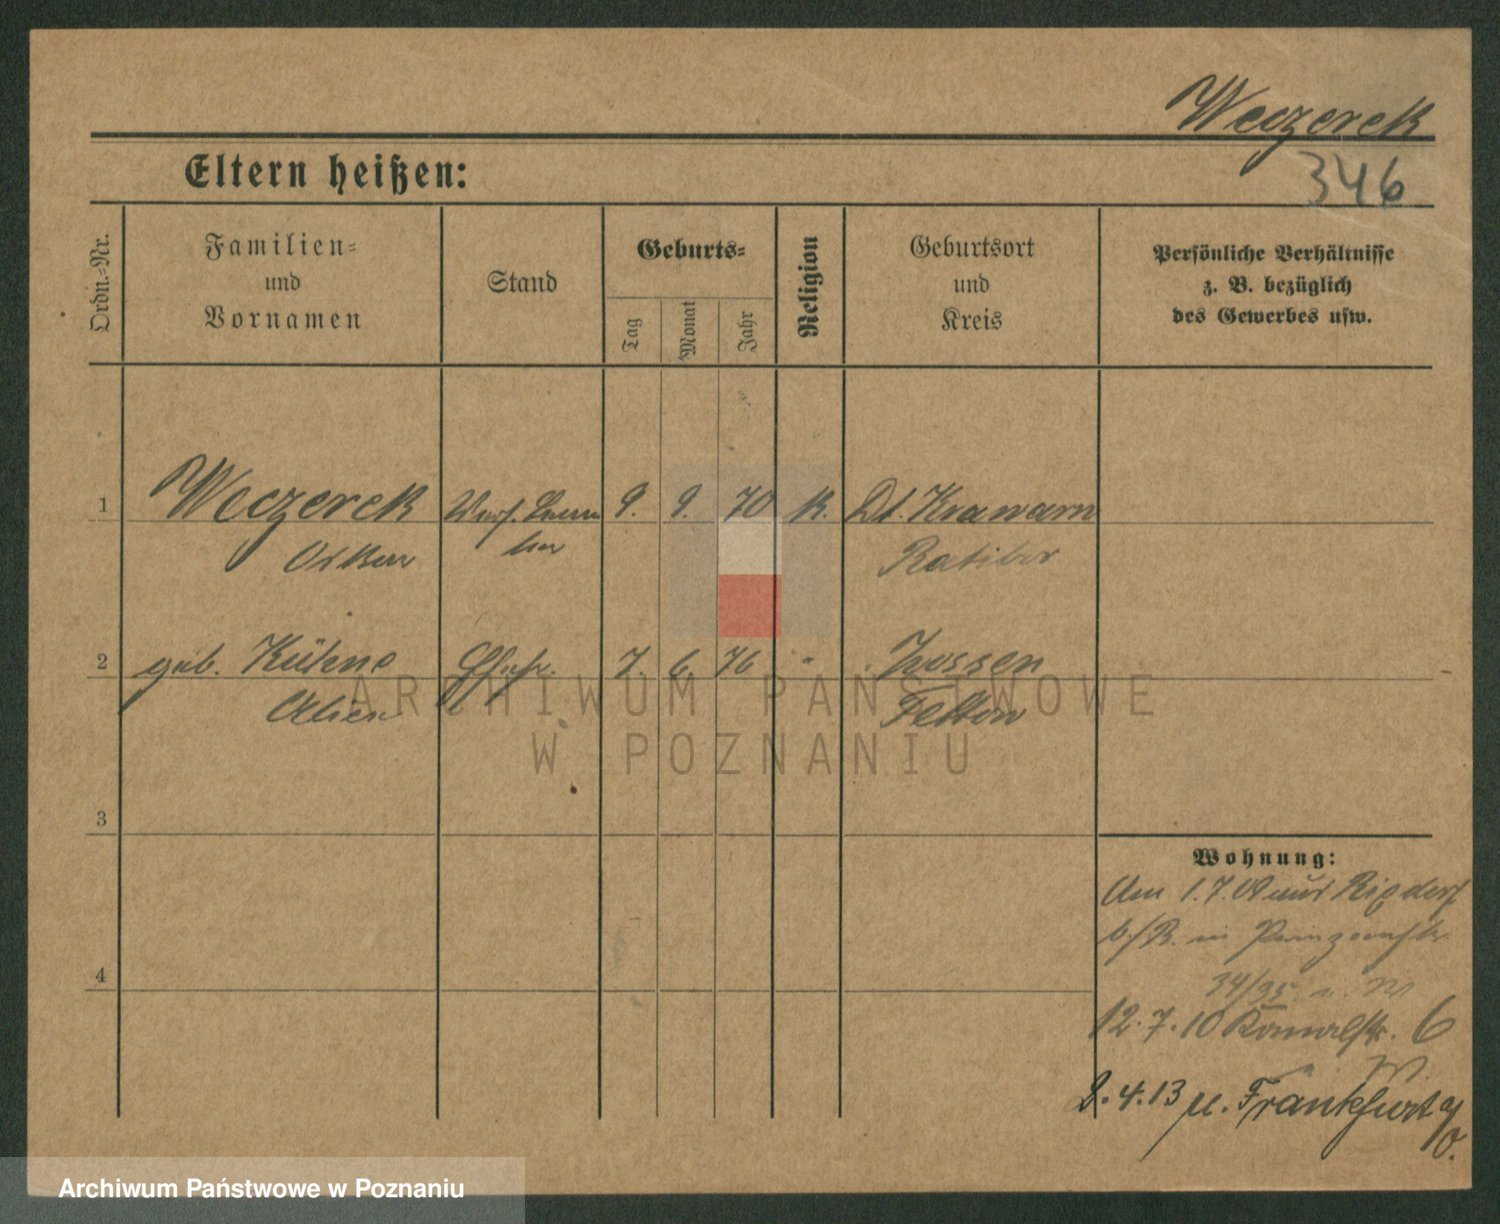 Weczerek
346
Eltern heißen:
Ordn.-Nr.
Familien-
und
Vornamen
Stand
Geburts-
Tag
Monat
Jahr
Religion
Geburtsort
und
Kreis
Persönliche Verhältnisse
z. B. bezüglich
des Gewerbes usw.
1 Weczerek 9. 9. 70 K. Dt. Krawarn
Oskar Ratibor
2 geb. Kühne Ehefr. 7. 6. 76 " Zossen
Teltow
3
4
Wohnung:
Am 1.7.09 aus Rixdorf
b/B. in
34/35. n. W
12.7.10 Kanalstr. 6
W.
2.4.13 n. Frankfurt a/O.
ARCHIWUM PAŃSTWOWE
W POZNANIU
Archiwum Państwowe w Poznaniu